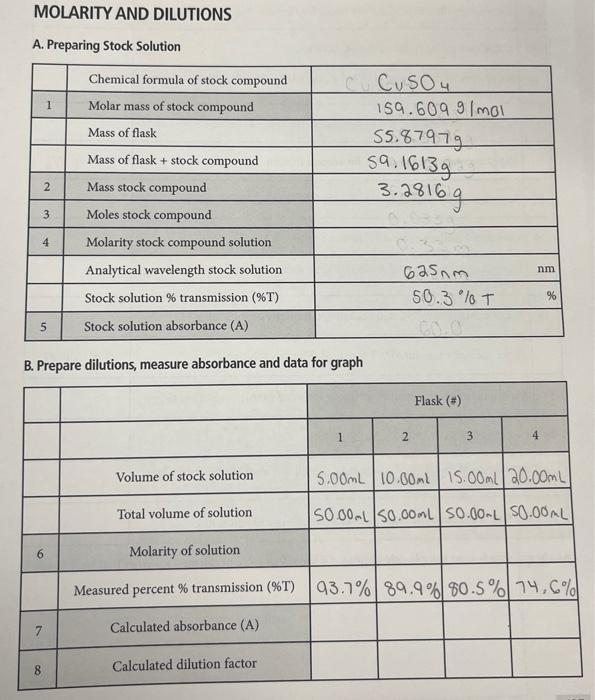 MOLARITY AND DILUTIONS
A. Preparing Stock Solution
Chemical formula of stock compound CuSO4
1 Molar mass of stock compound 159.609 g/mol
Mass of flask 55.8797g
Mass of flask + stock compound 59.1613g
2 Mass stock compound 3.2816 g
3 Moles stock compound
4 Molarity stock compound solution
Analytical wavelength stock solution 625nm nm
Stock solution % transmission (%T) 50.3 % T %
5 Stock solution absorbance (A) 60.0
B. Prepare dilutions, measure absorbance and data for graph
Flask (#)
1 2 3 4
Volume of stock solution 5.00mL 10.00mL 15.00mL 20.00mL
Total volume of solution 50.00mL 50.00mL 50.00mL 50.00mL
6 Molarity of solution
Measured percent % transmission (%T) 93.7% 89.9% 80.5% 74.6%
7 Calculated absorbance (A)
8 Calculated dilution factor